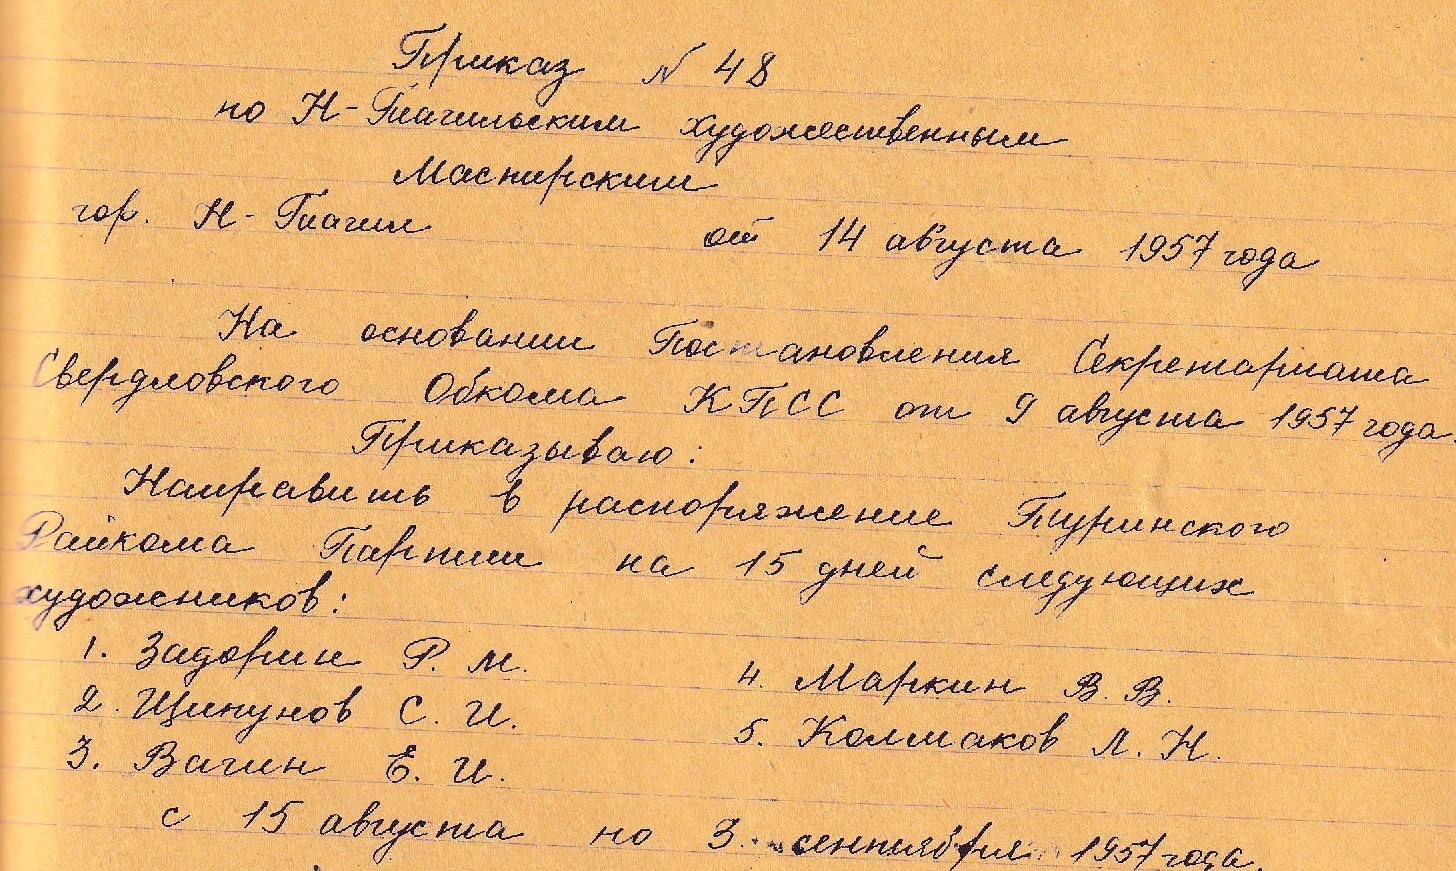 Приказ № 48
по Н-Тагильским художественным
Мастерским
гор. Н-Тагил от 14 августа 1957 года
На основании Постановления Секретариата
Свердловского Обкома КПСС от 9 августа 1957 года.
Приказываю:
Направить в распоряжение Туринского
Райкома Партии на 15 дней следующих
художников:
1. Задорин Р. М.
2. Щипунов С. И.
3. Вагин Е. И.
4. Маркин В. В.
5. Колмаков Л. Н.
с 15 августа по 3 сентября 1957 года.